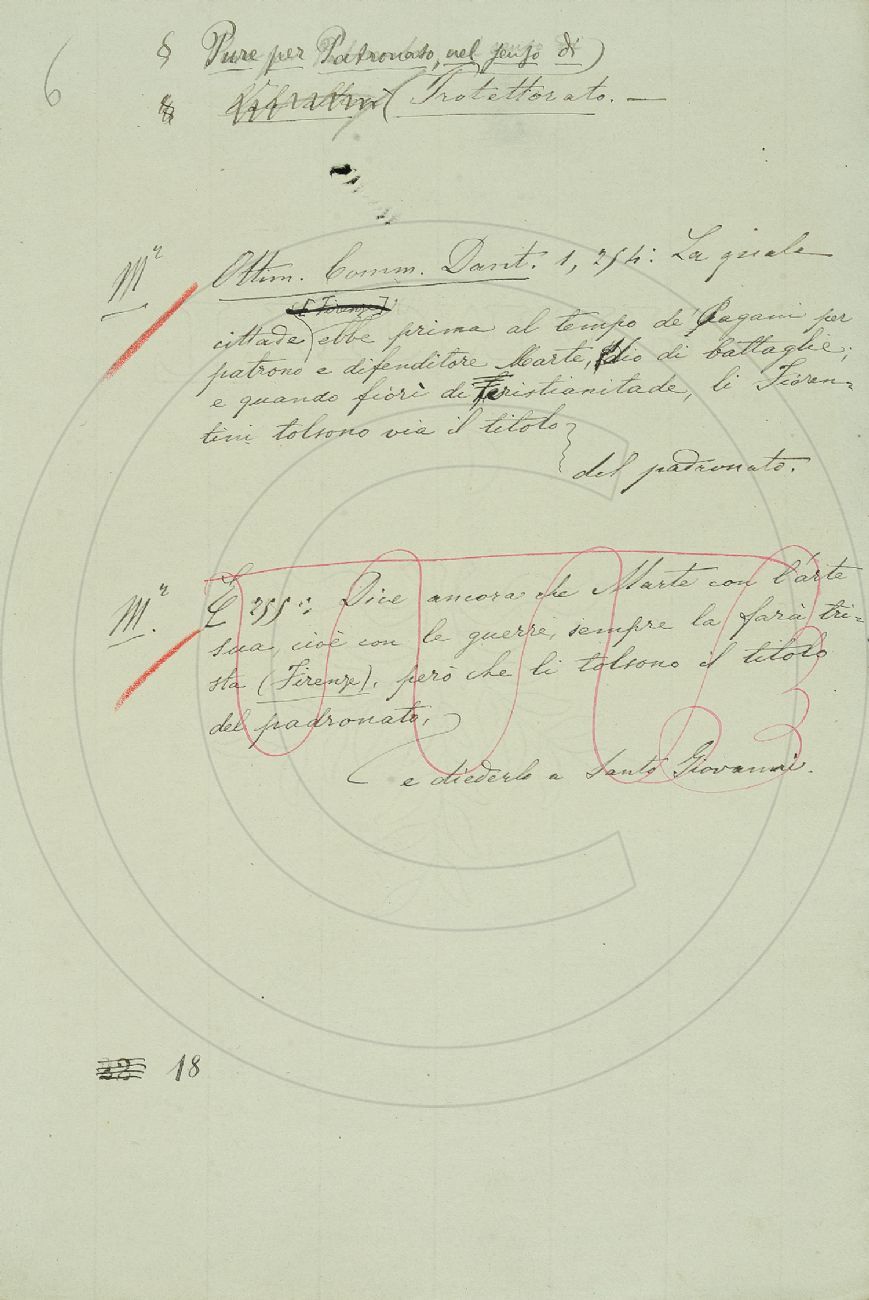 6
§ Pure per Patronato, nel senso di
§ Protettorato. —
Mr Ottim. Comm. Dant. 1, 254: La quale
([Firenze])
cittade ebbe prima al tempo de' Pagani per
patrono e difenditore Marte, dio di battaglie;
e quando fiorì di Cristianitade, li Fioren=
tini tolsono via il titolo
del padronato.
Mr E 255: Dice ancora che Marte con l'arte
sua, cioè con le guerre, sempre la farà tri=
sta (Firenze), però che li tolsono il titolo
del padronato,
e diederlo a Santo Giovanni.
18